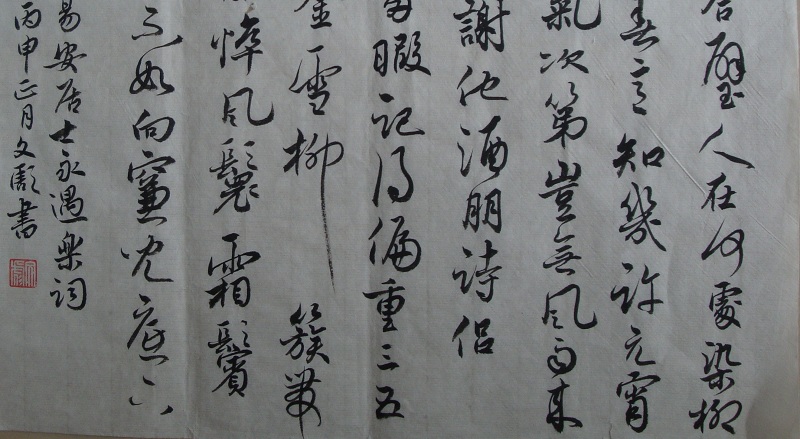 合璧人在何處染柳
春意知幾許元宵
氣次第豈無風雨来
謝他酒朋詩侶
暇記得偏重三五
金雪柳簇帶
悴風鬟霜鬢
不如向簾兒底下
易安居士永遇樂詞
丙申正月文書